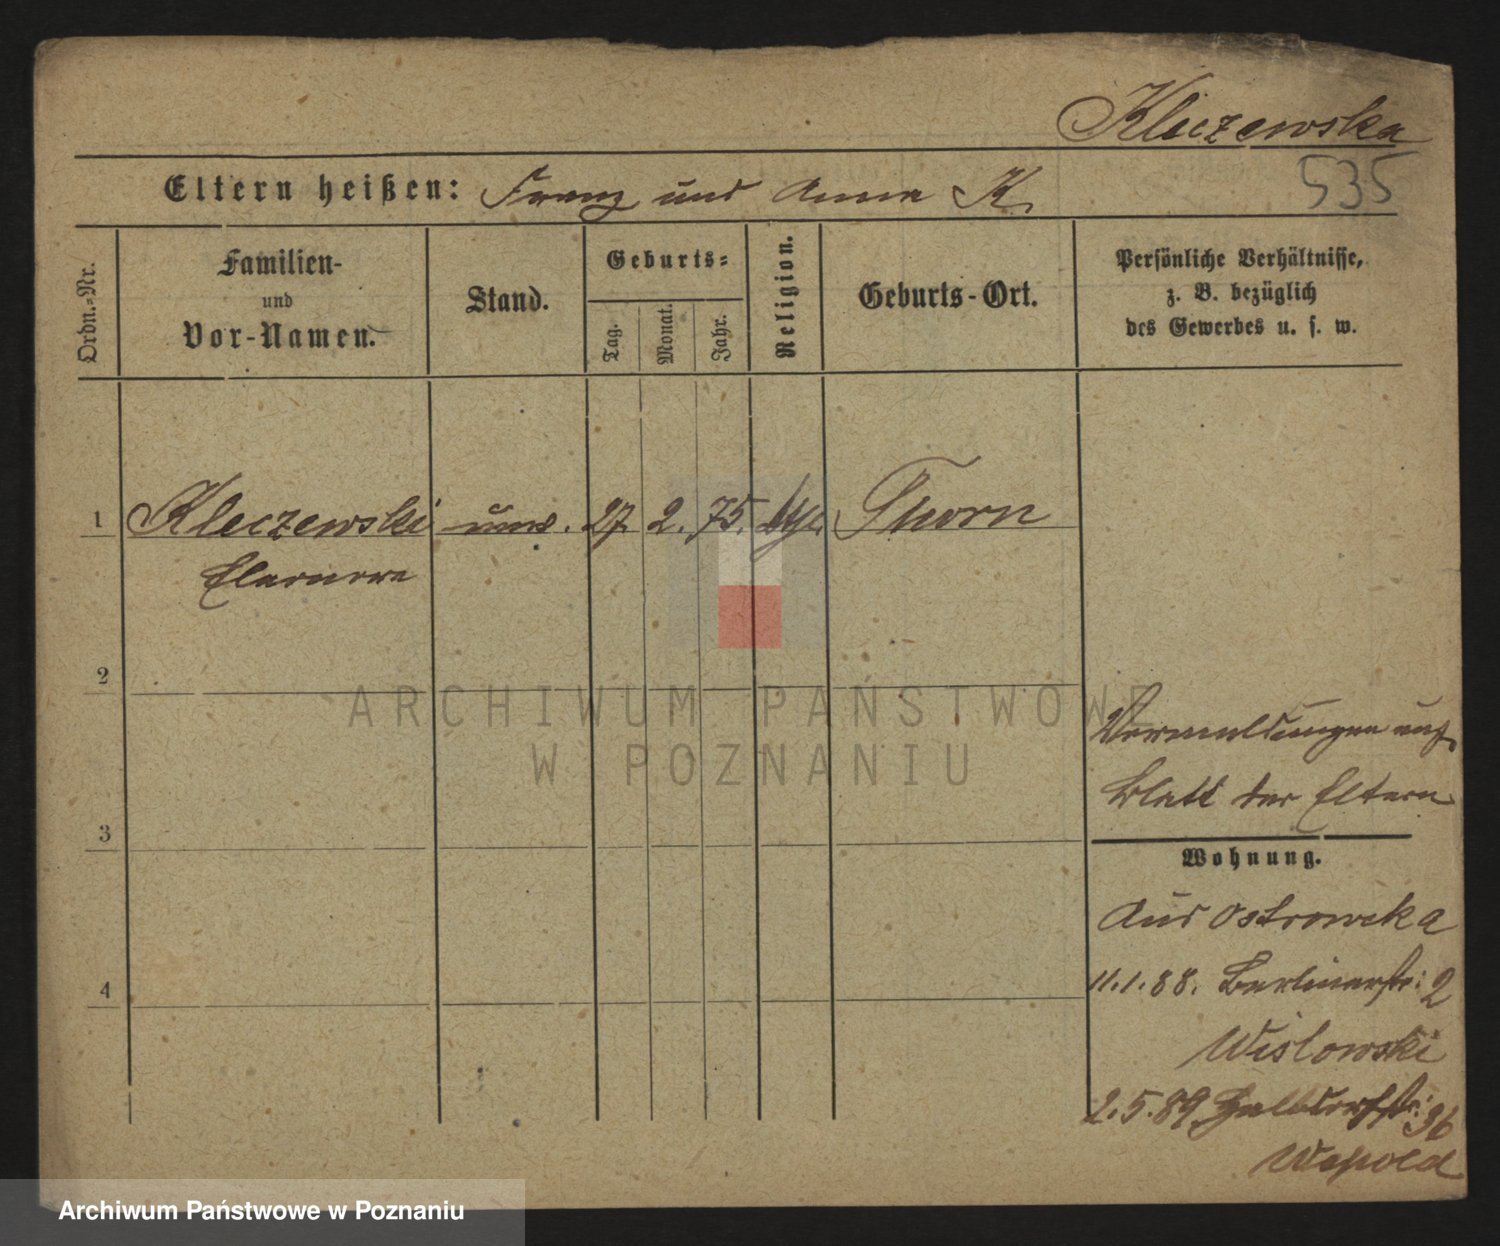 Kleczewska
535
Eltern heißen: Franz und Anna K.
Ordn.-Nr.
Familien- und Vor-Namen.
Stand.
Geburts-
Tag.
Monat.
Jahr.
Religion.
Geburts-Ort.
Persönliche Verhältnisse,
z. B. bezüglich
des Gewerbes u. s. w.
1 Kleczewski 27. 2. 75. Thorn
2
3
4
Vermeldungen auf
Blatt der Eltern
Wohnung.
Aus Ostrowek a
11.1.88. Berlinerstr: 2
Wislowski
2.5.89 Halbdorfstr: 36
ARCHIWUM PAŃSTWOWE
W POZNANIU
Archiwum Państwowe w Poznaniu